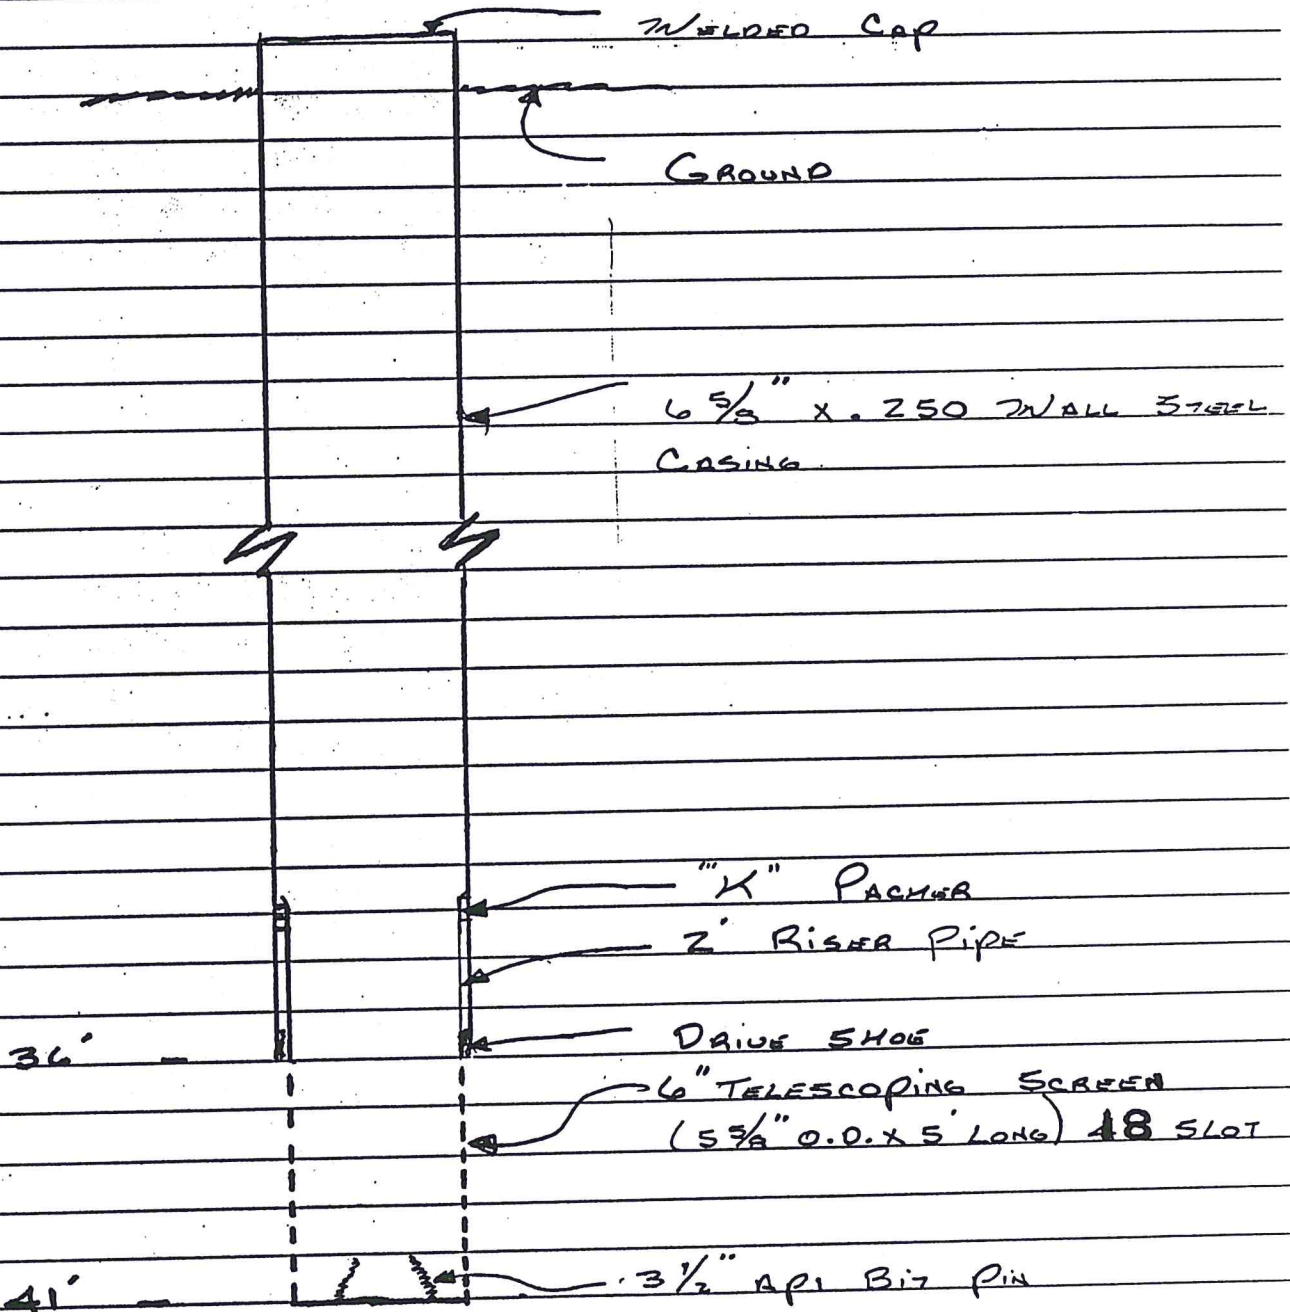 WELDED CAP
GROUND
6 5/8" X .250 WALL STEEL
CASING
"K" PACKER
2' RISER PIPE
DRIVE SHOE
36'
6" TELESCOPING SCREEN
(5 5/8" O.D. X 5' LONG) 18 SLOT
3 1/2" API BIT PIN
41'